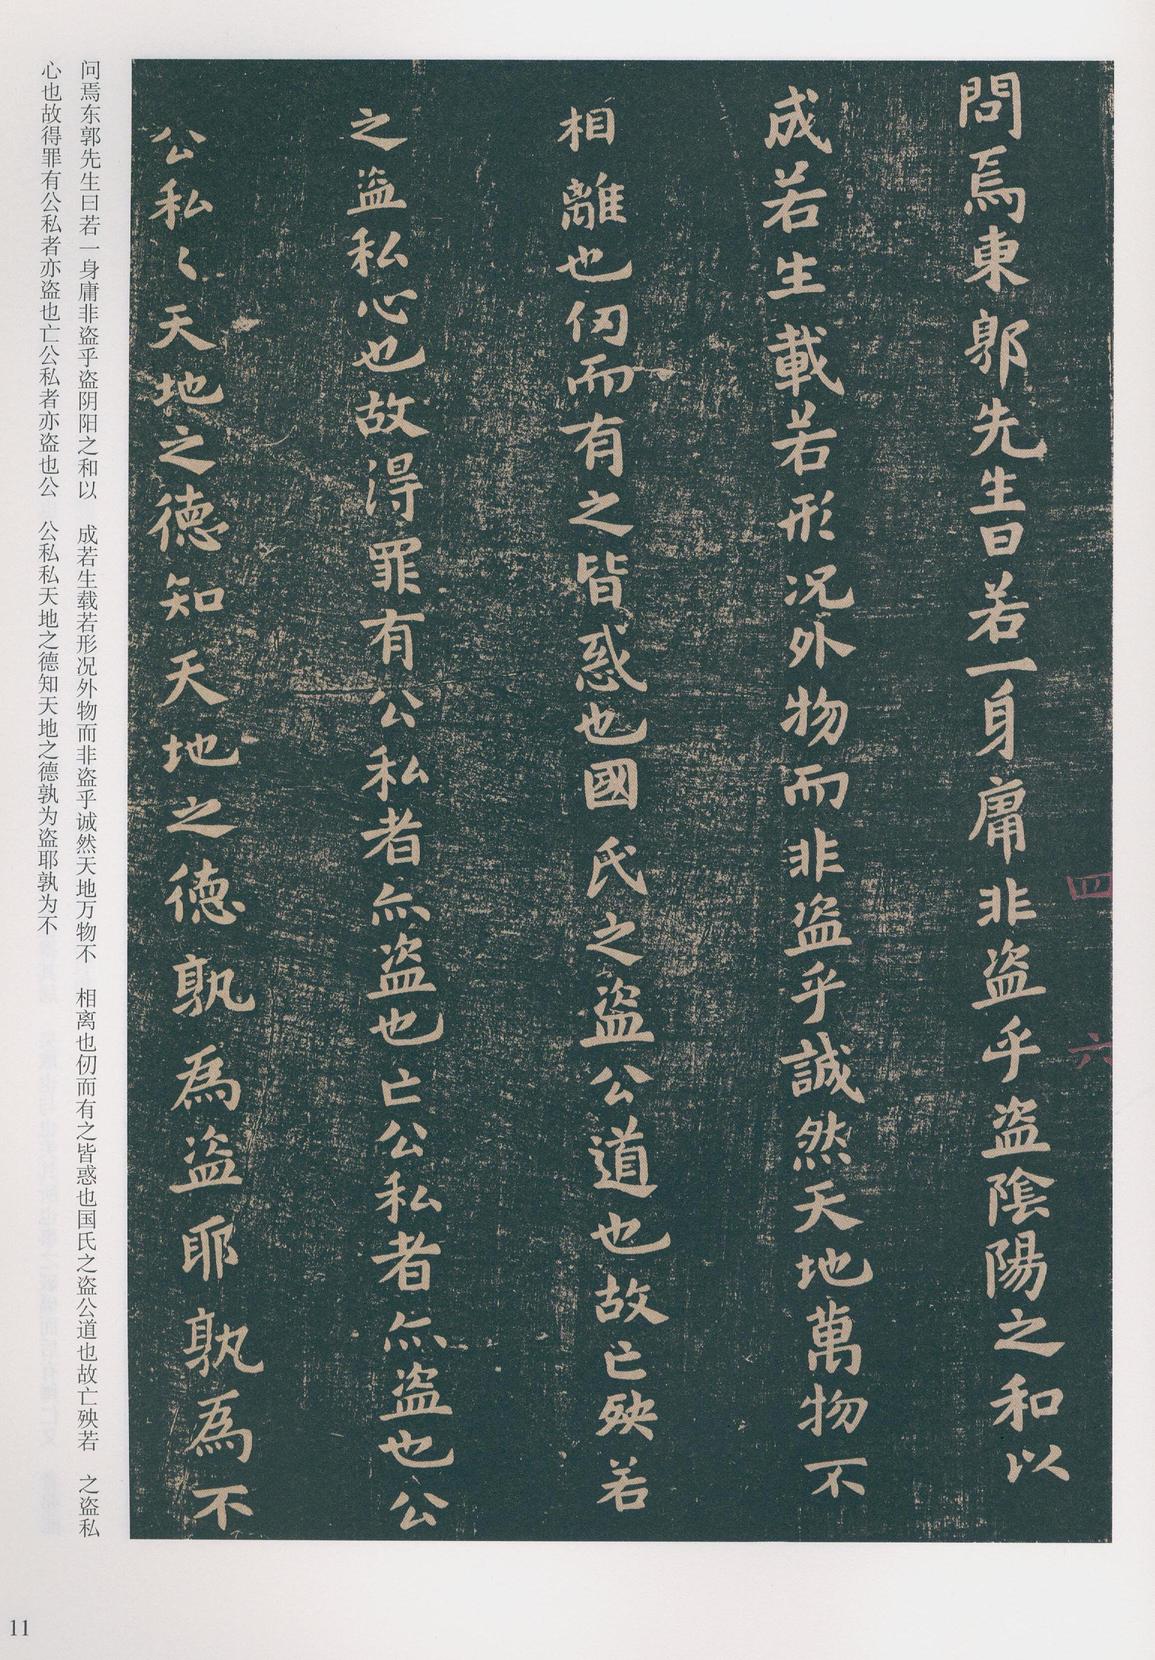 問焉東郭先生曰若一身庸非盗乎盗陰陽之和以
成若生載若形况外物而非盗乎誠然天地萬物不
相離也仞而有之皆惑也國氏之盗公道也故亡殃若
之盗私心也故得罪有公私者亦盗也亡公私者亦盗也公
公私〻天地之德知天地之德孰為盗耶孰為不
四六
问焉东郭先生曰若一身庸非盗乎盗阴阳之和以 成若生载若形况外物而非盗乎诚然天地万物不 相离也仞而有之皆惑也国氏之盗公道也故亡殃若 之盗私
心也故得罪有公私者亦盗也亡公私者亦盗也公 公私私天地之德知天地之德孰为盗耶孰为不
11